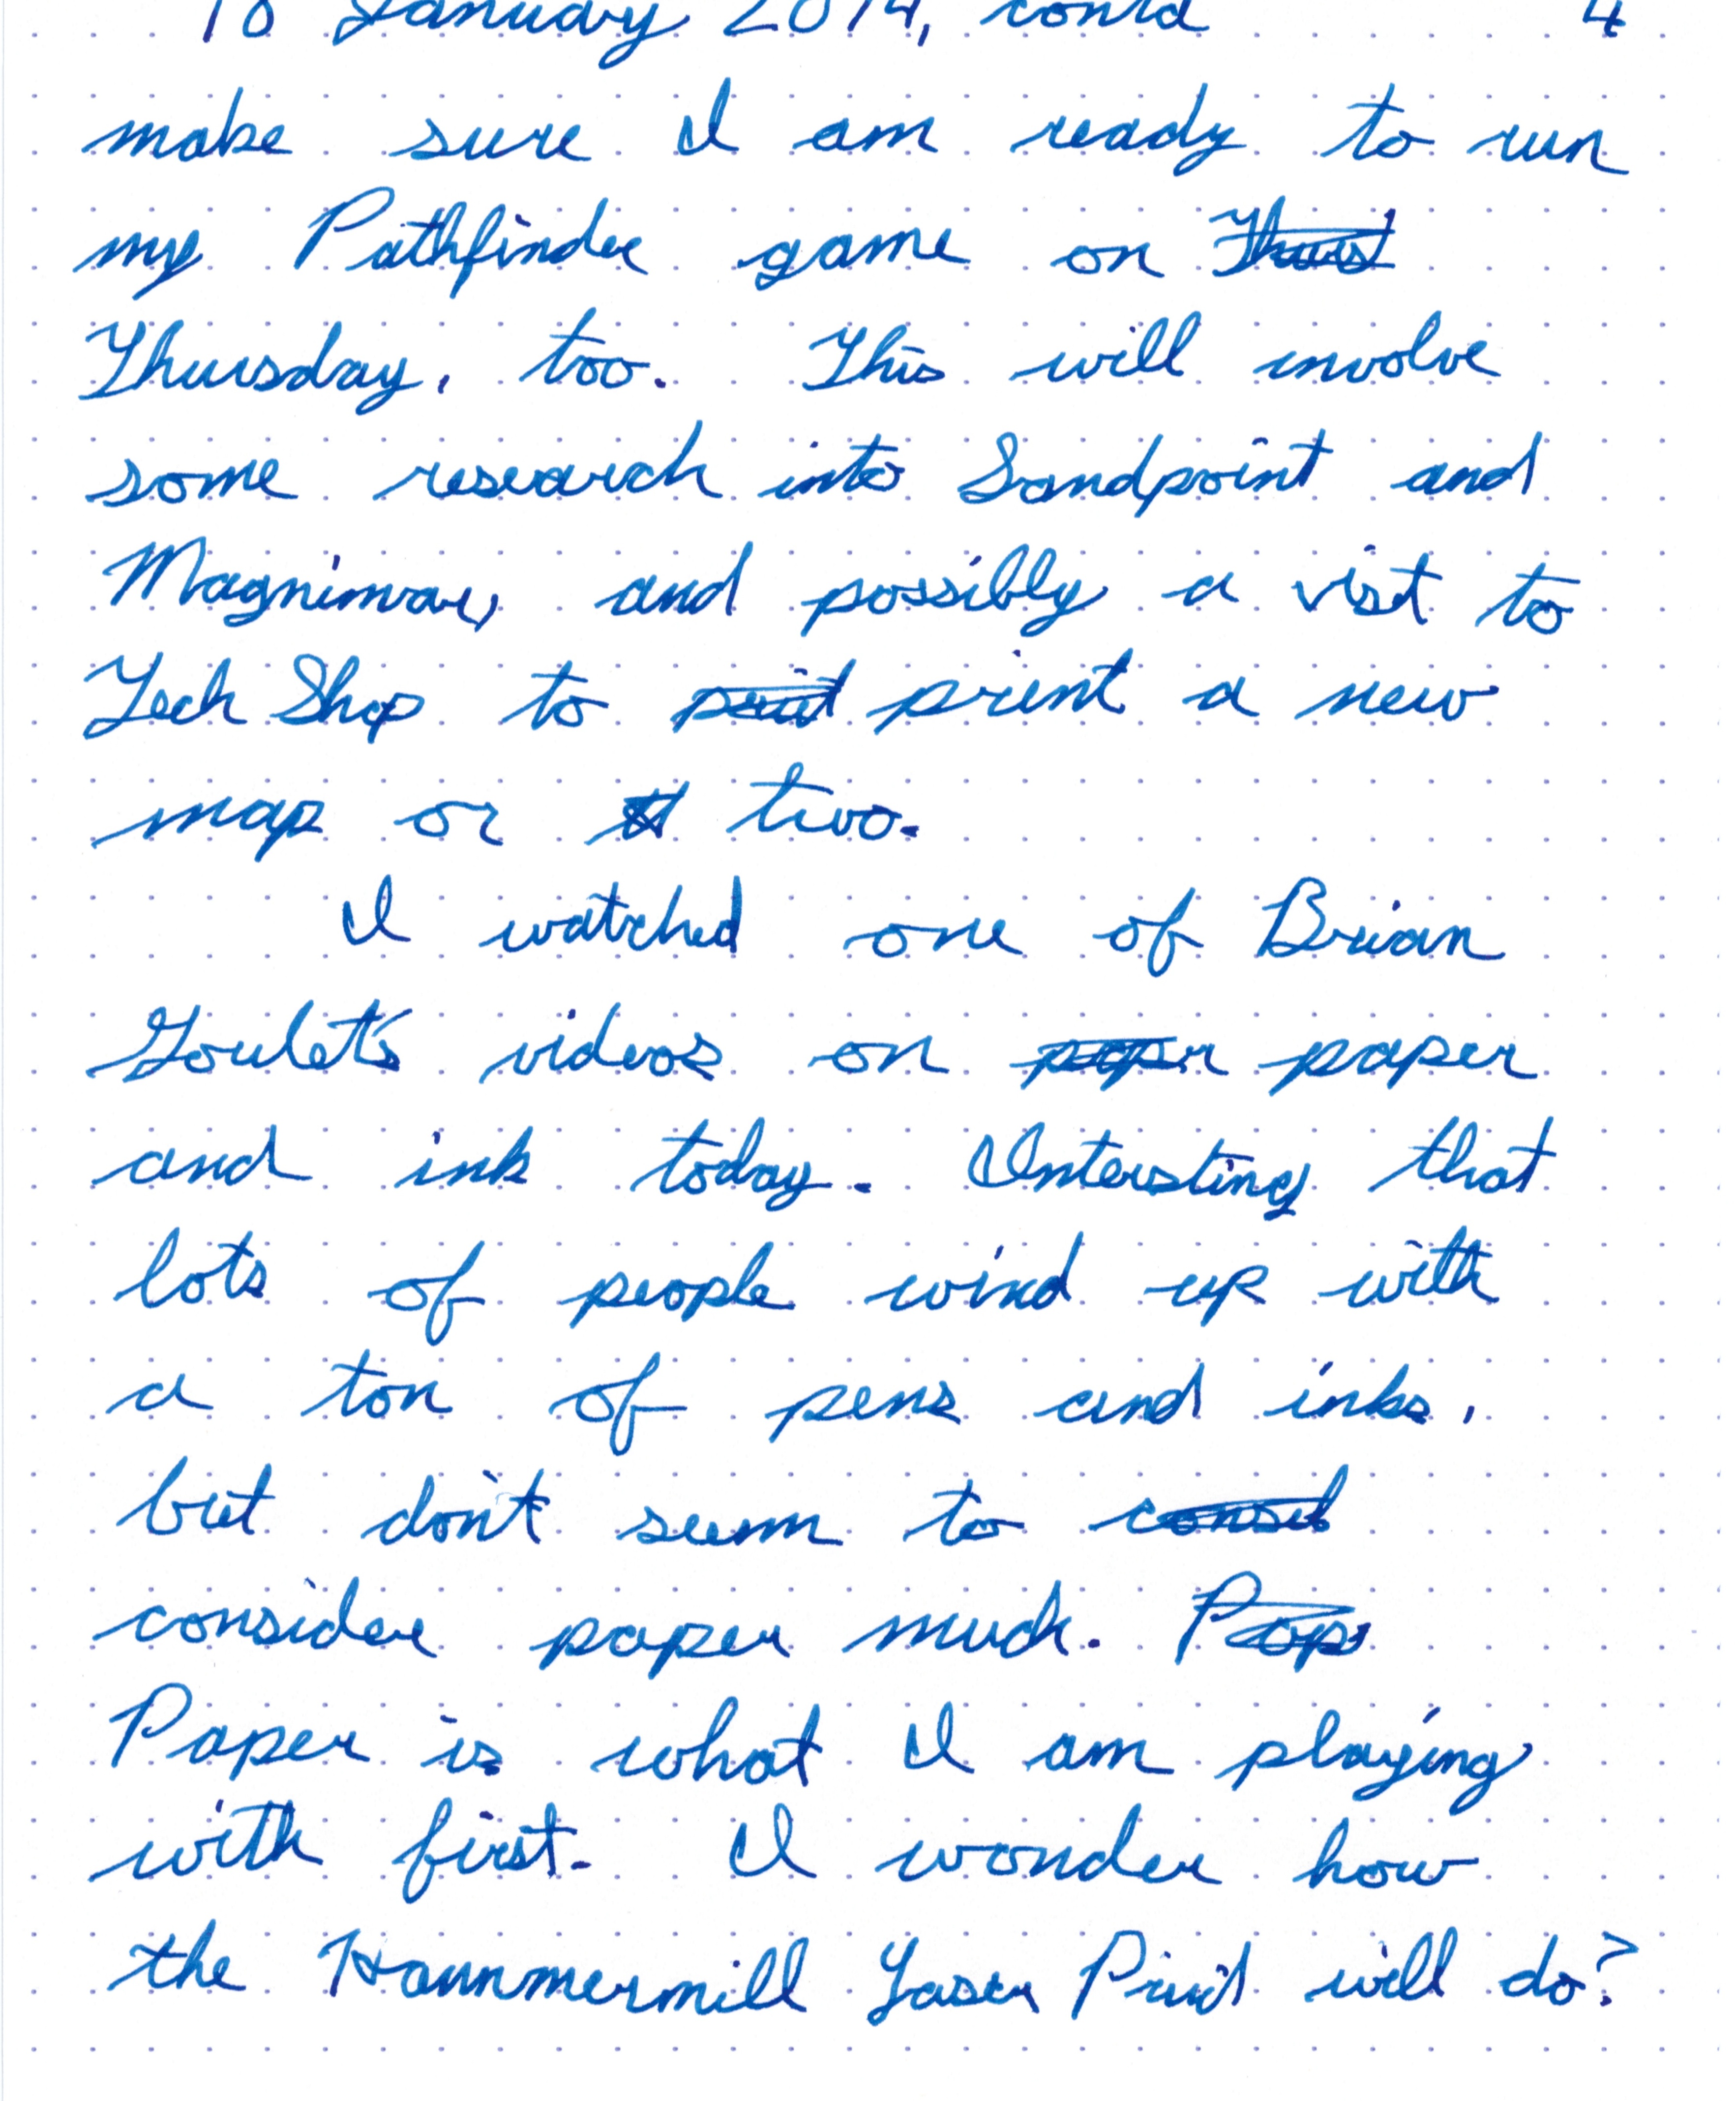 18 January 2014, cont'd 4
make sure I am ready to run
my Pathfinder game on Thurst
Thursday, too. This will involve
some research into Sandpoint and
Magnimar, and possibly a vist to
Tech Shop to print a new
map or two.
I watched one of Brian
Goulet's videos on paper paper
and ink today. Intersting that
lots of people wind up with
a ton of pens and inks,
but don't seem to consid
consider paper much. Pap
Paper is what I am playing
with first. I wonder how
the Hammermill Laser Print will do?